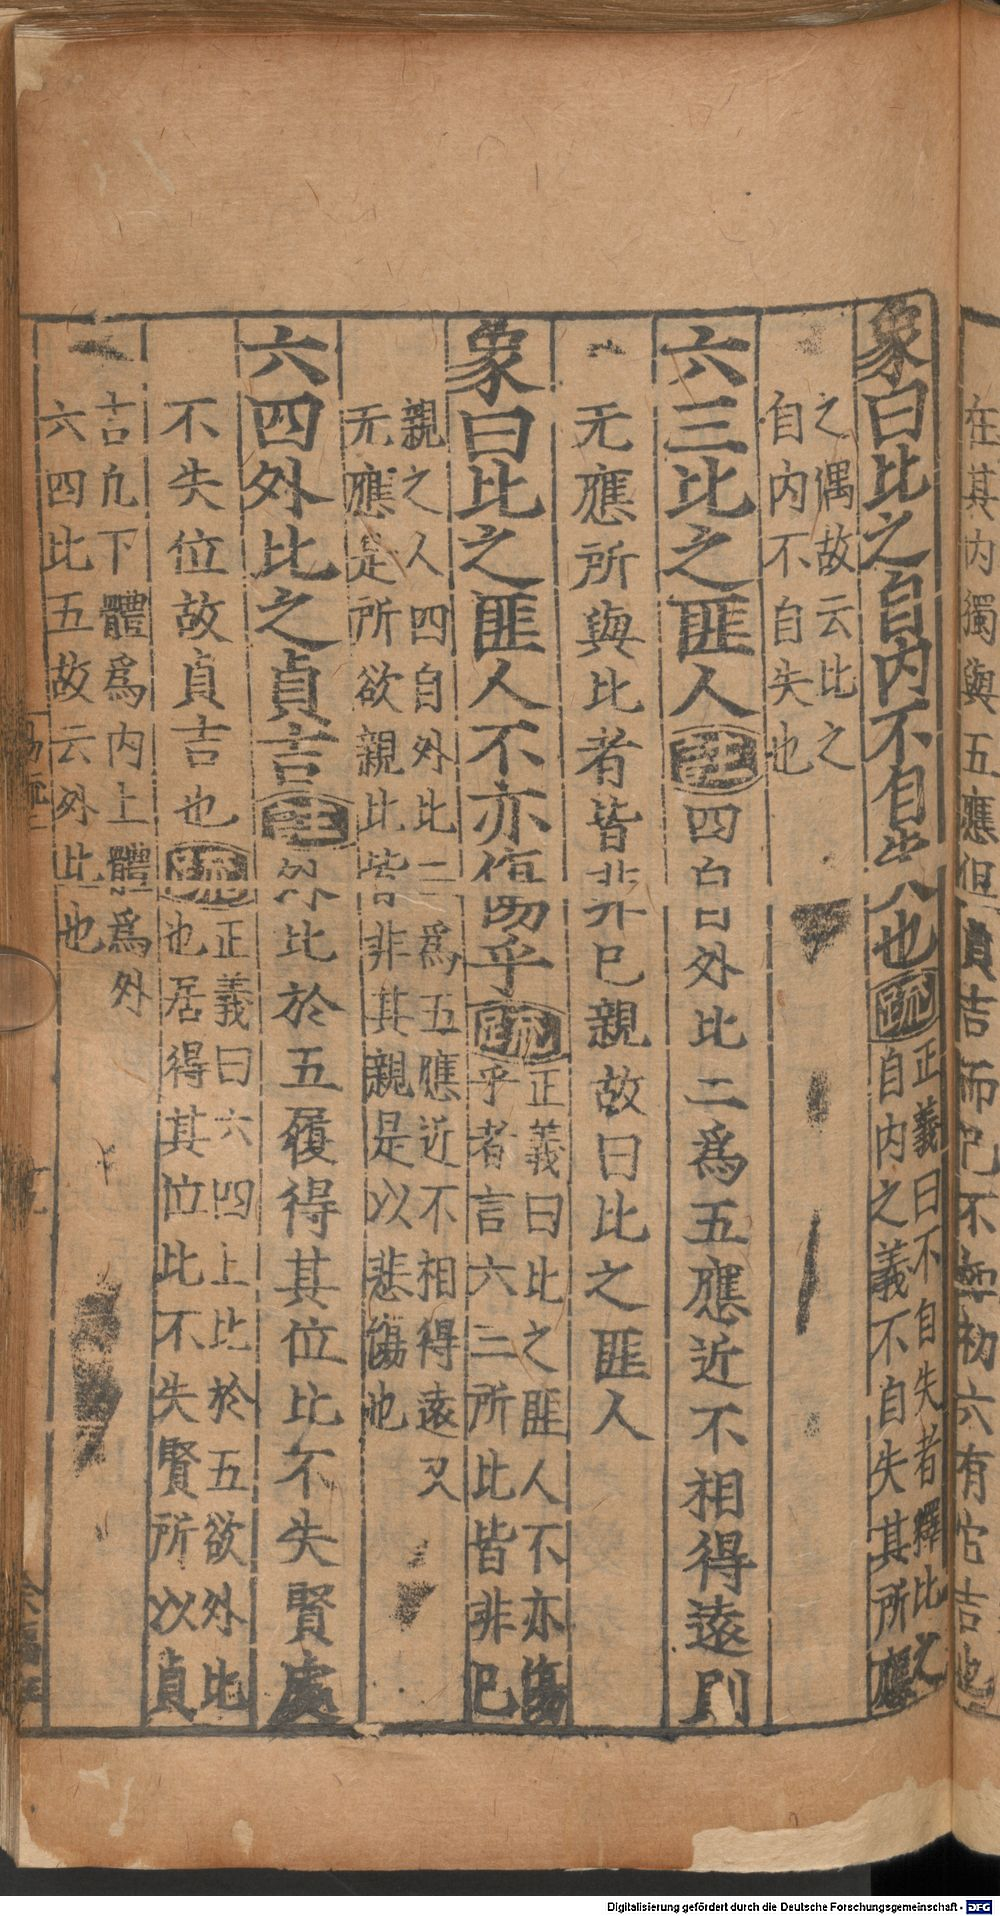 在其内獨與五應但貞吉而已不初六有它吉也
象曰比之自内不自失也疏正義曰不自失者釋比之
自内之義不自失其所應
之偶故云比之
自内不自失也
六三比之匪人注四自外比二爲五應近不相得遠則
无應所與比者皆非已親故曰比之匪人
象曰比之匪人不亦傷乎疏正義曰比之匪人不亦傷
乎者言六三所比皆非已
親之人四自外比二爲五應近不相得遠又
无應是所欲親比皆非其親是以悲傷也
六四外比之貞吉注外比於五履得其位比不失賢處
不失位故貞吉也疏正義曰六四上比於五欲外比
也居得其位比不失賢所以貞
吉凢下體爲内上體爲外
六四比五故云外比也
Digitalisierung gefördert durch die Deutsche Forschungsgemeinschaft - DFG